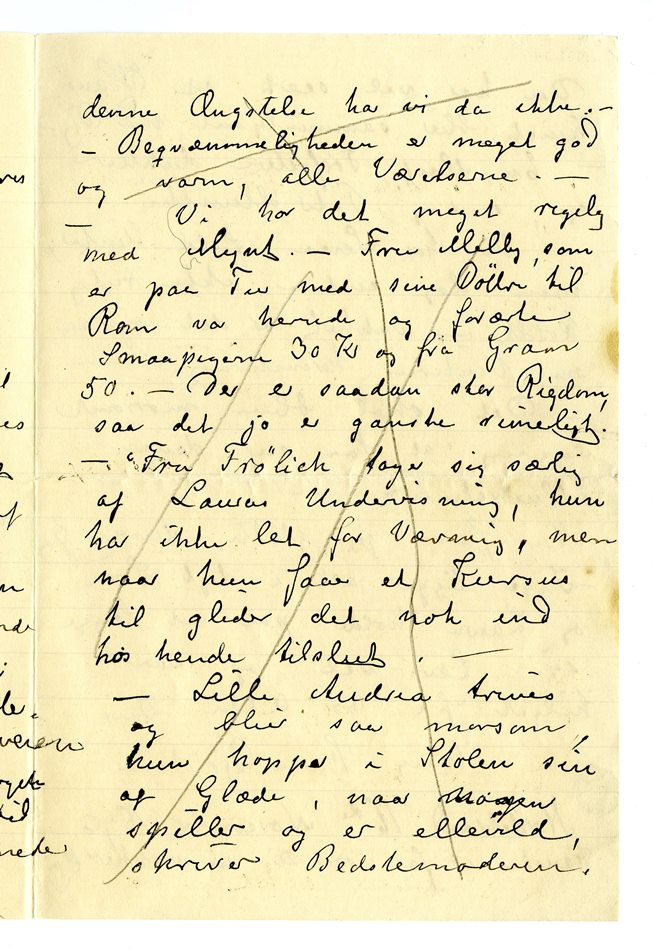 denne Ængstelse har vi da ikke. –
– Beqvæmmeligheden er meget god
og varm, alle Værelserne. –
– Vi har det meget regelig
med Mynt. – Fru Melby, som
er paa Tur med sine Döttre til
Rom var hernede og forærte
Smaapigerne 30 Kr og fra Gram
50. – Der er saadan stor Rigdom,
saa det jo er ganske rimeligt.
– "Fru Frölich tager sig særlig
af Lauras Undervisning, hun
har ikke let for Vævning, men
naar hun faaer et Kursus
til glider det nok ind
hos hende tilslut. –
– Lille Andrea trives
og blir saa morsom,
hun hopper i Stolen sin
af Glæde, naar nogen
spiller og er ellevild,
skriver Bedstemoderen.